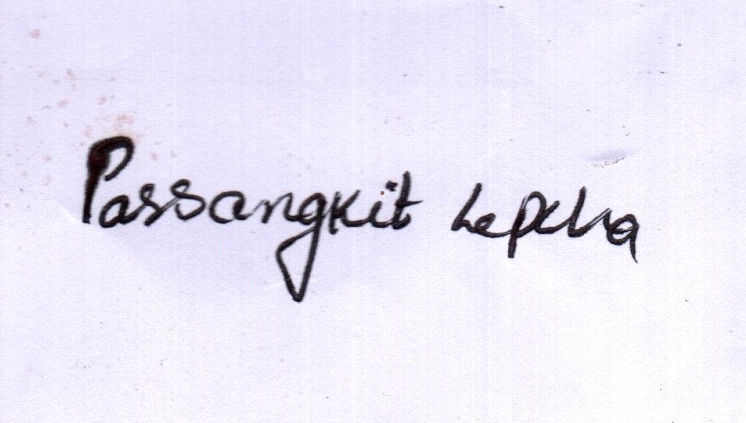 Passangkit Lepcha